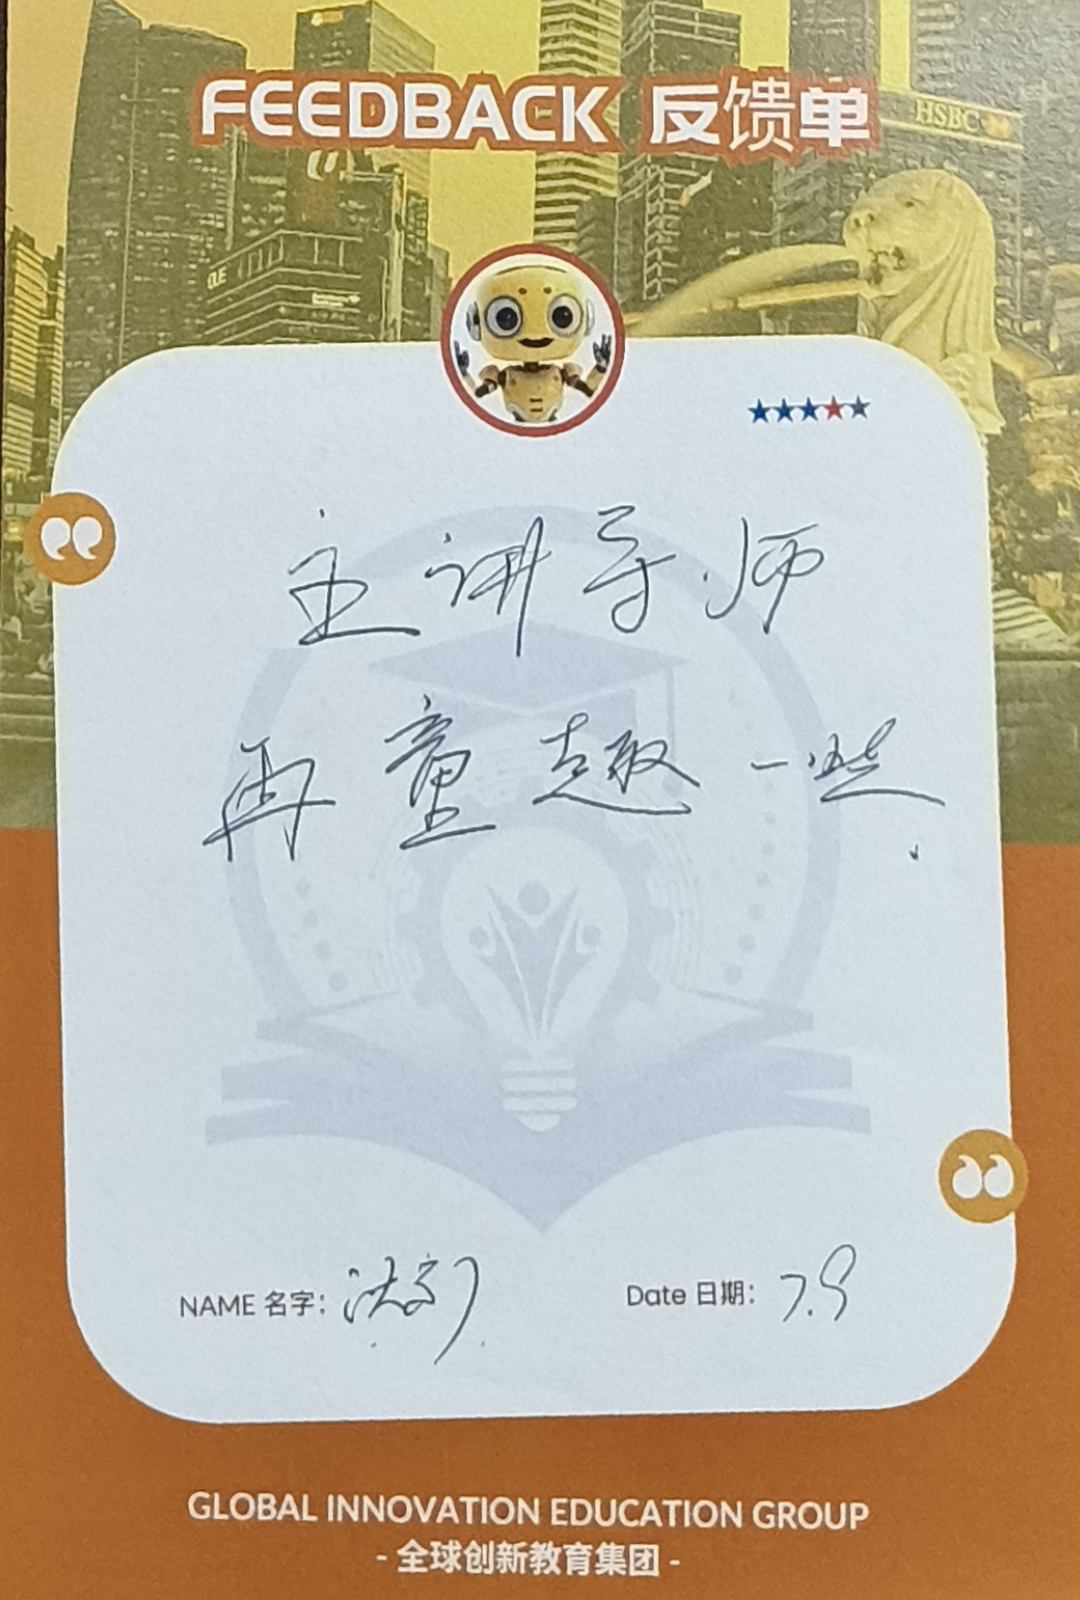 FEEDBACK 反馈单
HSBC
OUE
主讲导师
再童趣一些.
NAME 名字:
Date 日期: 7.9
GLOBAL INNOVATION EDUCATION GROUP
- 全球创新教育集团 -